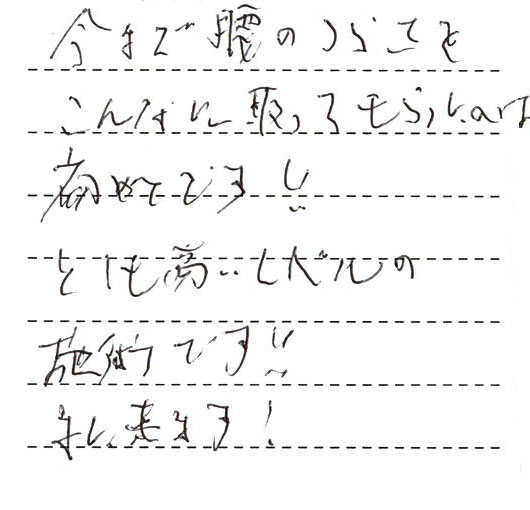 今まで腰のつらさを
こんなに取ってもらったのは
初めてです!!
とても高いレベルの
施術です!!
また来ます!